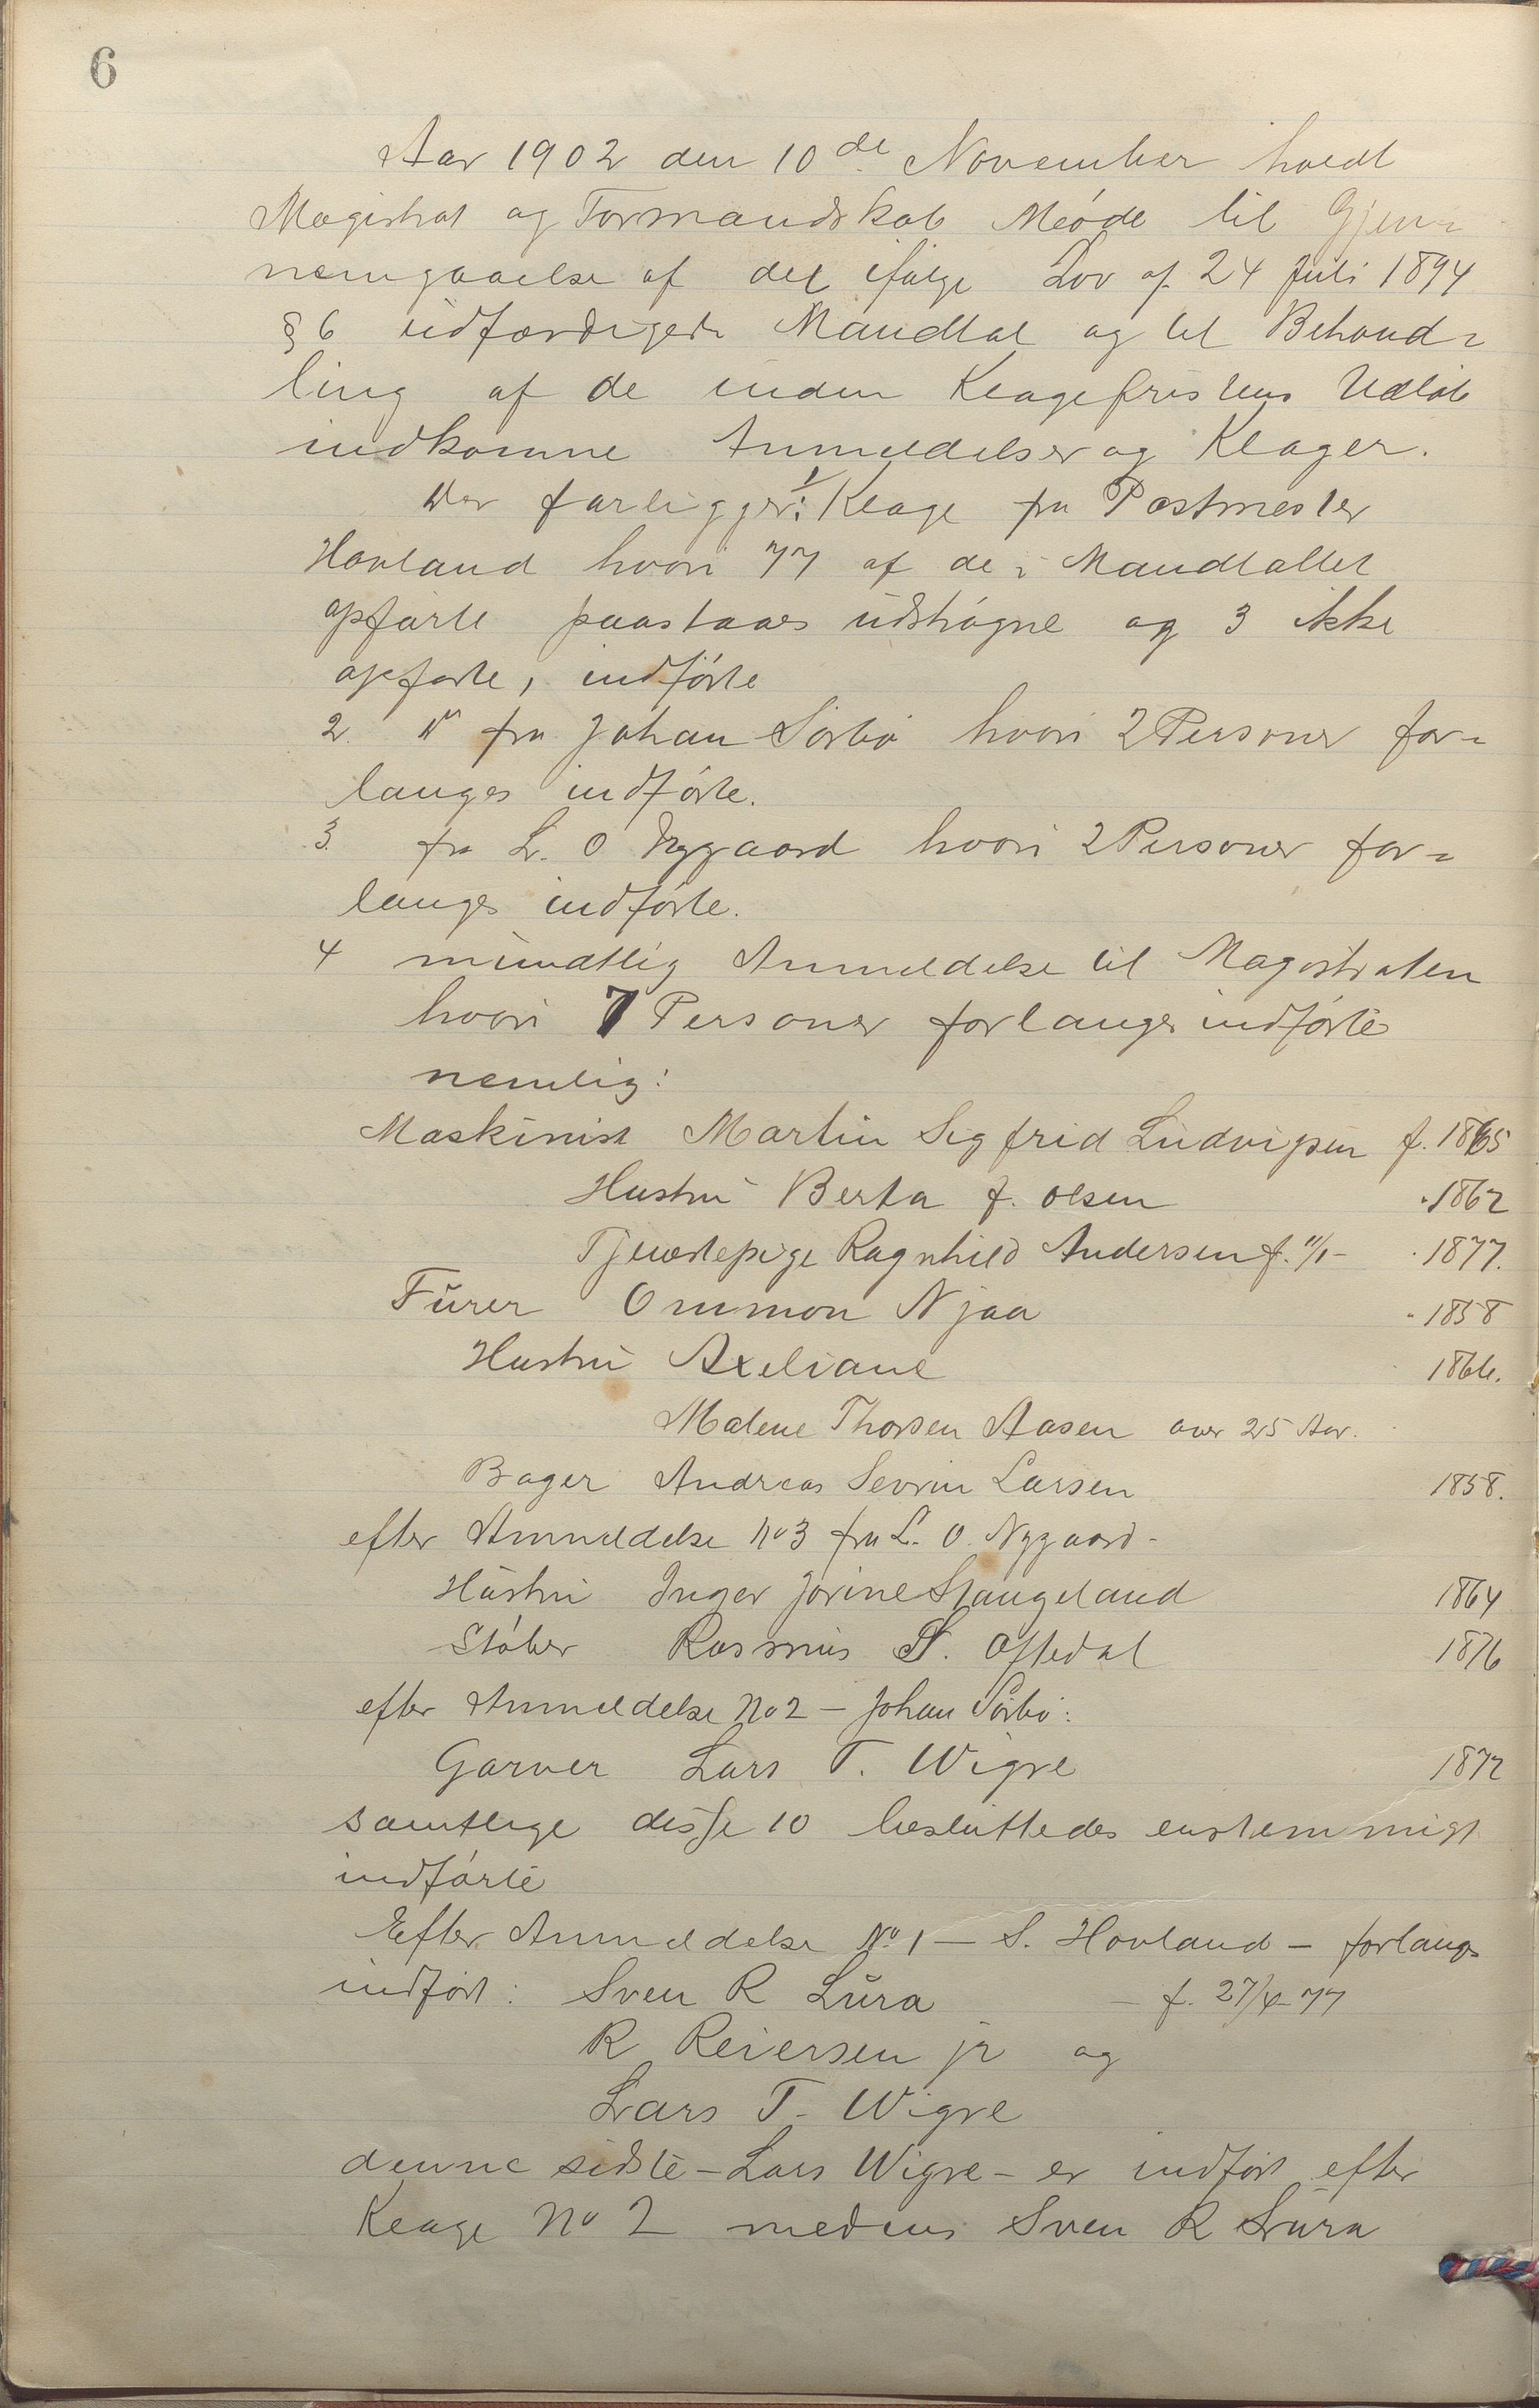 6
Aar 1902 den 10de November holdt
Magistrat og Formandskab Møde til Gjen-
nemgaaelse af det ifølge Lov af 24 Juli 1894
§ 6 udfærdigede Mandtal og til Behand-
ling af de inden Klagefristens Udløb
indkomne Anmeldelser og Klager.
Der forligger: 1/ Klage fra Postmester
Hovland hvori 77 af de i Mandtallet
opførte paastaaes udstrøgne og 3 ikke
opførte, indførte
2. Do fra Johan Sørbø hvori 2 Personer for-
langes indførte.
3. fra L. O Nygaard hvori 2 Personer for-
langes indførte.
4 mundtlig Anmeldelse til Magistraten
hvori 7 Personer forlanges indførte
nemlig:
Maskinist Martin Sigfrid Ludvigsen f. 1865
Hustru Berta f. Olsen 1862
Tjenestepige Ragnhild Andersen f. 11/1- 1877.
Fürer Ommon Njaa 1858
Hustru Axeliane 1866.
Malene Thorsen Aasen over 25 Aar.
Bager Andreas Sevrin Larsen 1858.
efter Anmeldelse No 3 fra L. O. Nygaard-
Hustru Inger Jorine Stangeland 1864
Støber Rasmus S. Oftedal 1876
efter Anmeldelse No 2 - Johan Sørbø:
Garver Lars T. Wigre 1872
samtlige disse 10 besluttedes enstemmigt
indførte
Efter Anmeldelse No 1 - S. Hovland - forlanges
indført: Sven R Lura - f. 27/4-77
R Reiersen jr og
Lars T. Wigre
denne sidste - Lars Wigre - er indført efter
Klage No 2 medens Sven R Lura